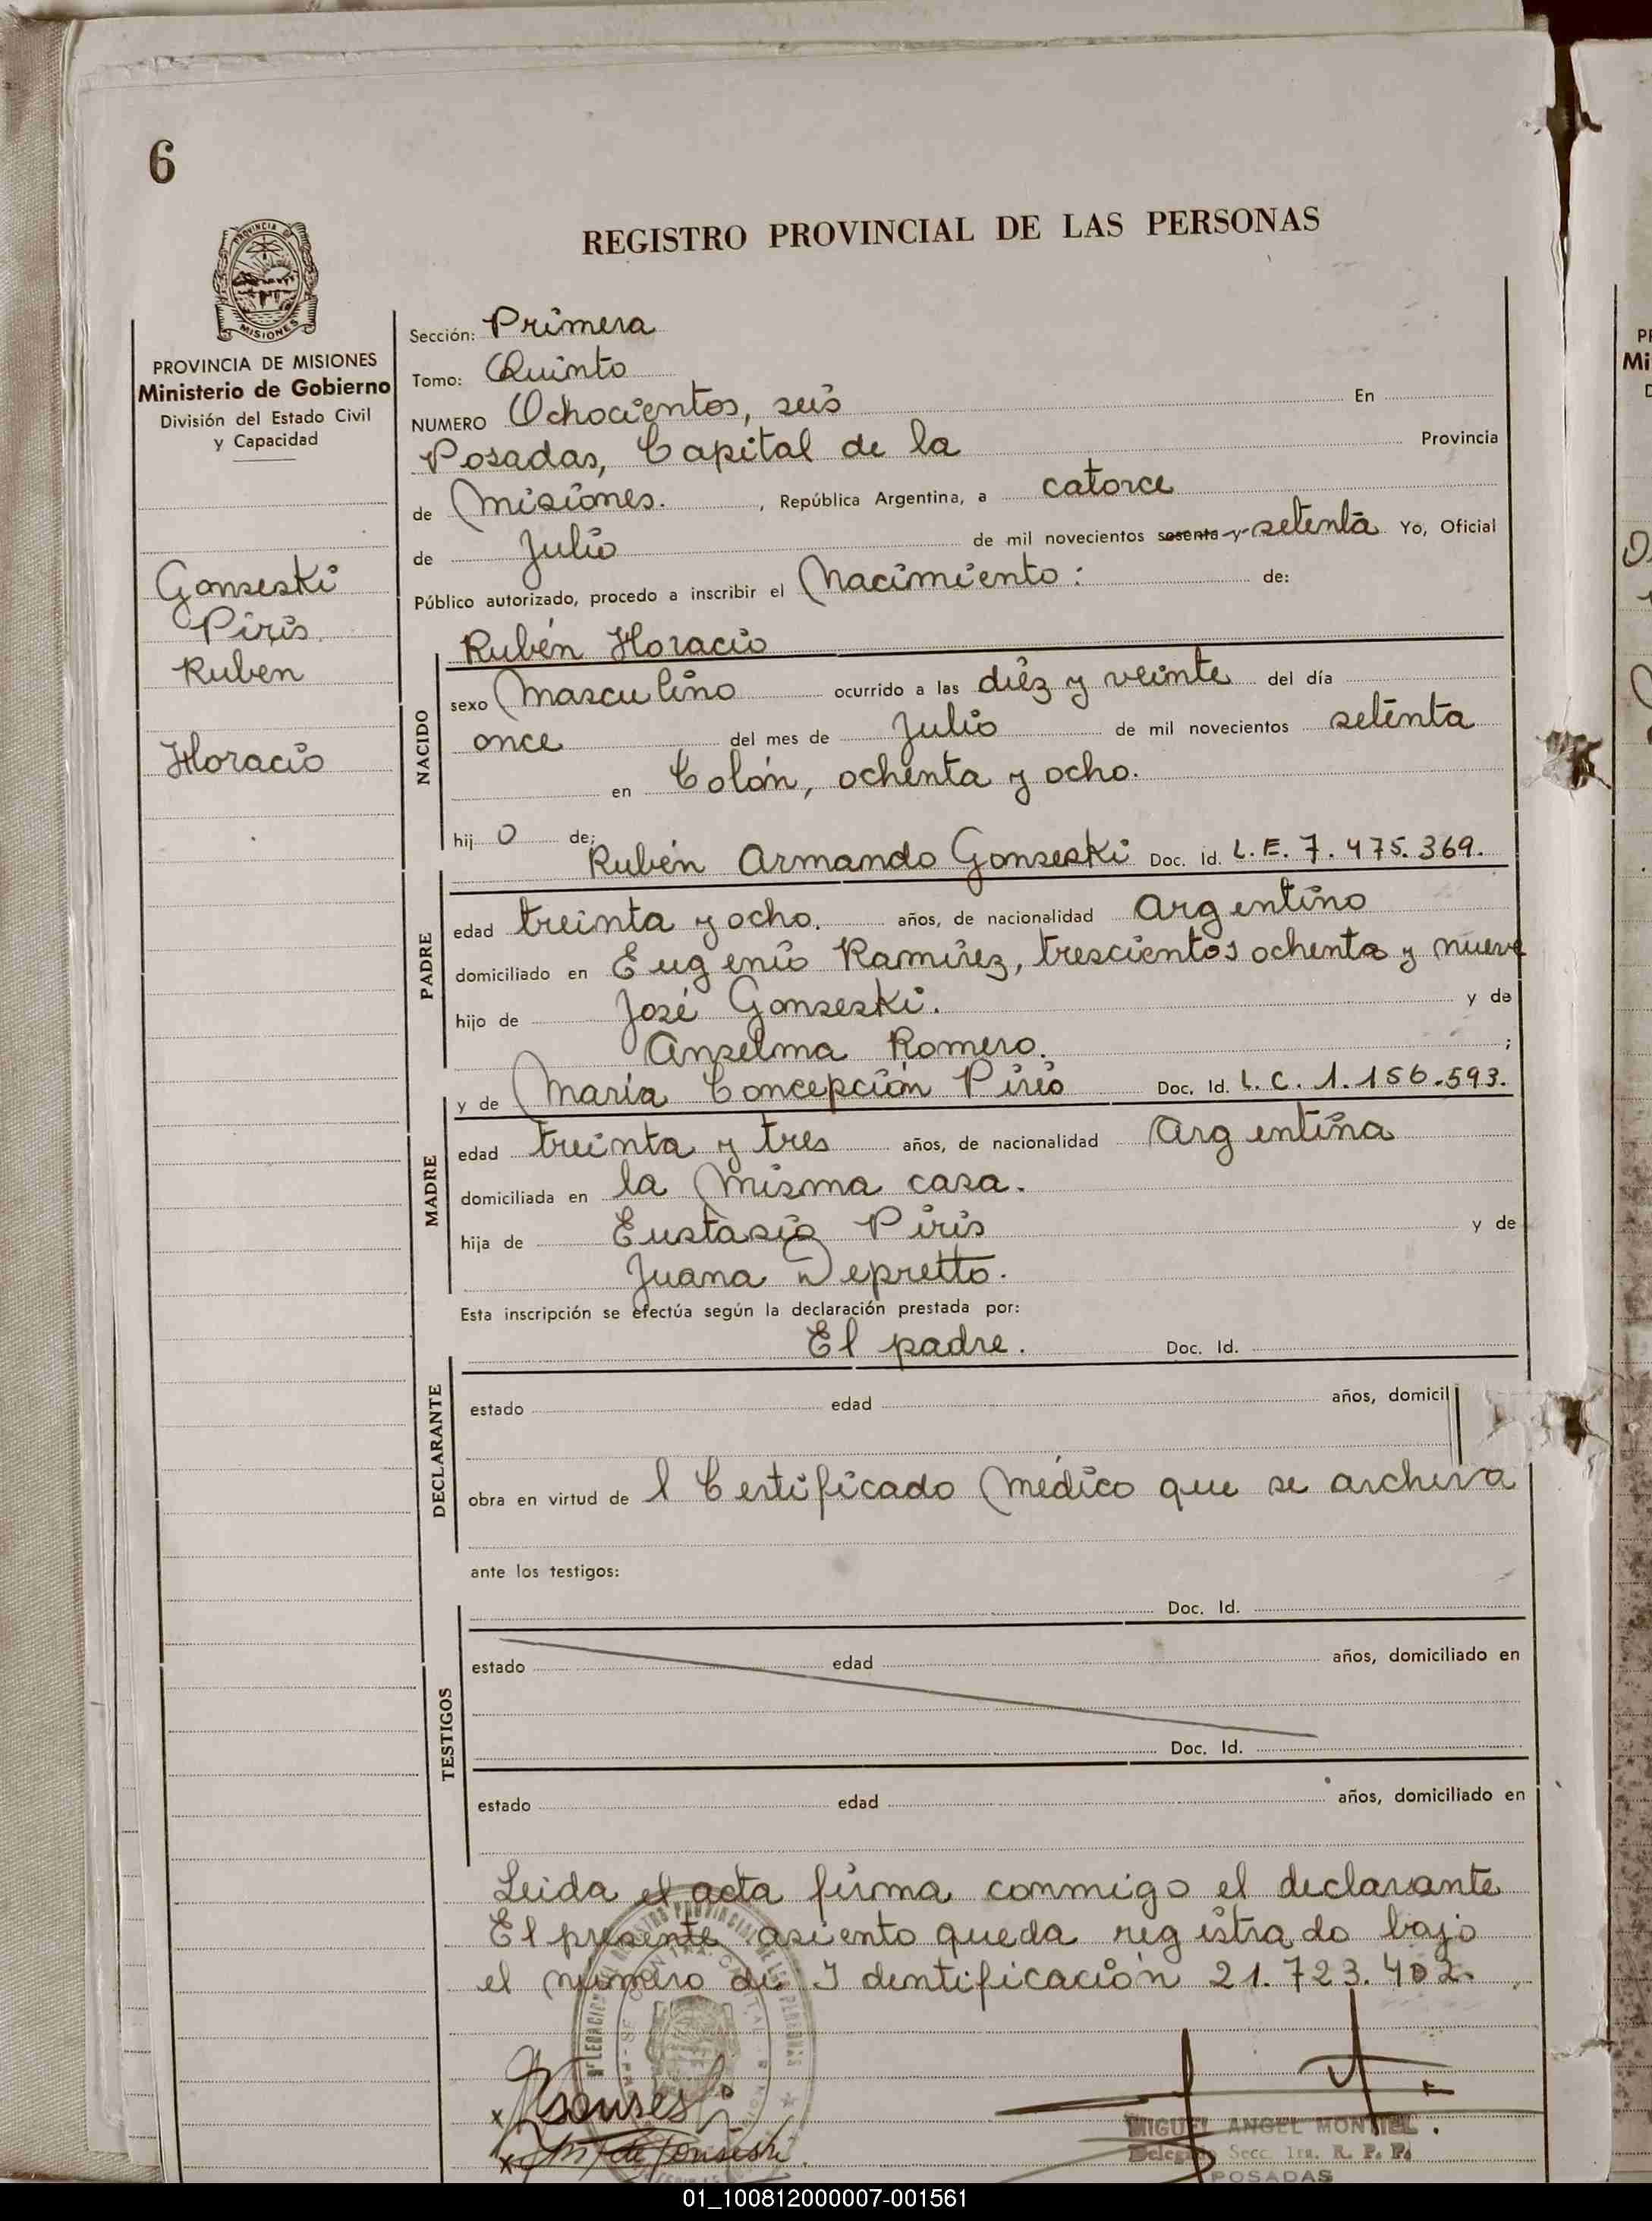 6
REGISTRO PROVINCIAL DE LAS PERSONAS
PROVINCIA DE
MISIONES
PROVINCIA DE MISIONES
Ministerio de Gobierno
División del Estado Civil
y Capacidad
Gonseski
Piris
Ruben
Horacio
Sección: Primera
Tomo: Quinto
NUMERO Ochocientos, seis En
Posadas, Capital de la Provincia
de Misiones. , República Argentina, a catorce
de Julio de mil novecientos sesenta y setenta Yo, Oficial
Público autorizado, procedo a inscribir el Nacimiento: de:
Rubén Horacio
NACIDO
sexo Masculino ocurrido a las diéz y veinte del día
once del mes de Julio de mil novecientos setenta
en Colón, ochenta y ocho.
hij o de;
Rubén Armando Gonseski Doc. Id. L.E. 7.475.369.
PADRE
edad treinta y ocho. años, de nacionalidad Argentino
domiciliado en Eugenio Ramírez, trescientos ochenta y nueve
hijo de José Gonseski. y de
Anselma Romero. ;
y de María Concepción Piris Doc. Id. L.C. 1.156.593.
MADRE
edad treinta y tres años, de nacionalidad Argentina
domiciliada en la misma casa.
hija de Eustasio Piris y de
Juana Depretto.
Esta inscripción se efectúa según la declaración prestada por:
El padre. Doc. Id.
DECLARANTE
estado edad años, domicil
obra en virtud de l Certificado médico que se archiva
ante los testigos:
Doc. Id.
TESTIGOS
estado edad años, domiciliado en
Doc. Id.
estado edad años, domiciliado en
Leida el acta firma conmigo el declarante
El presente asiento queda registrado bajo
el número de Identificación 21.723.402.
MIGUEL ANGEL MONTIEL
Delegado Secc. 1ra. R. P. P.
POSADAS
01_100812000007-001561